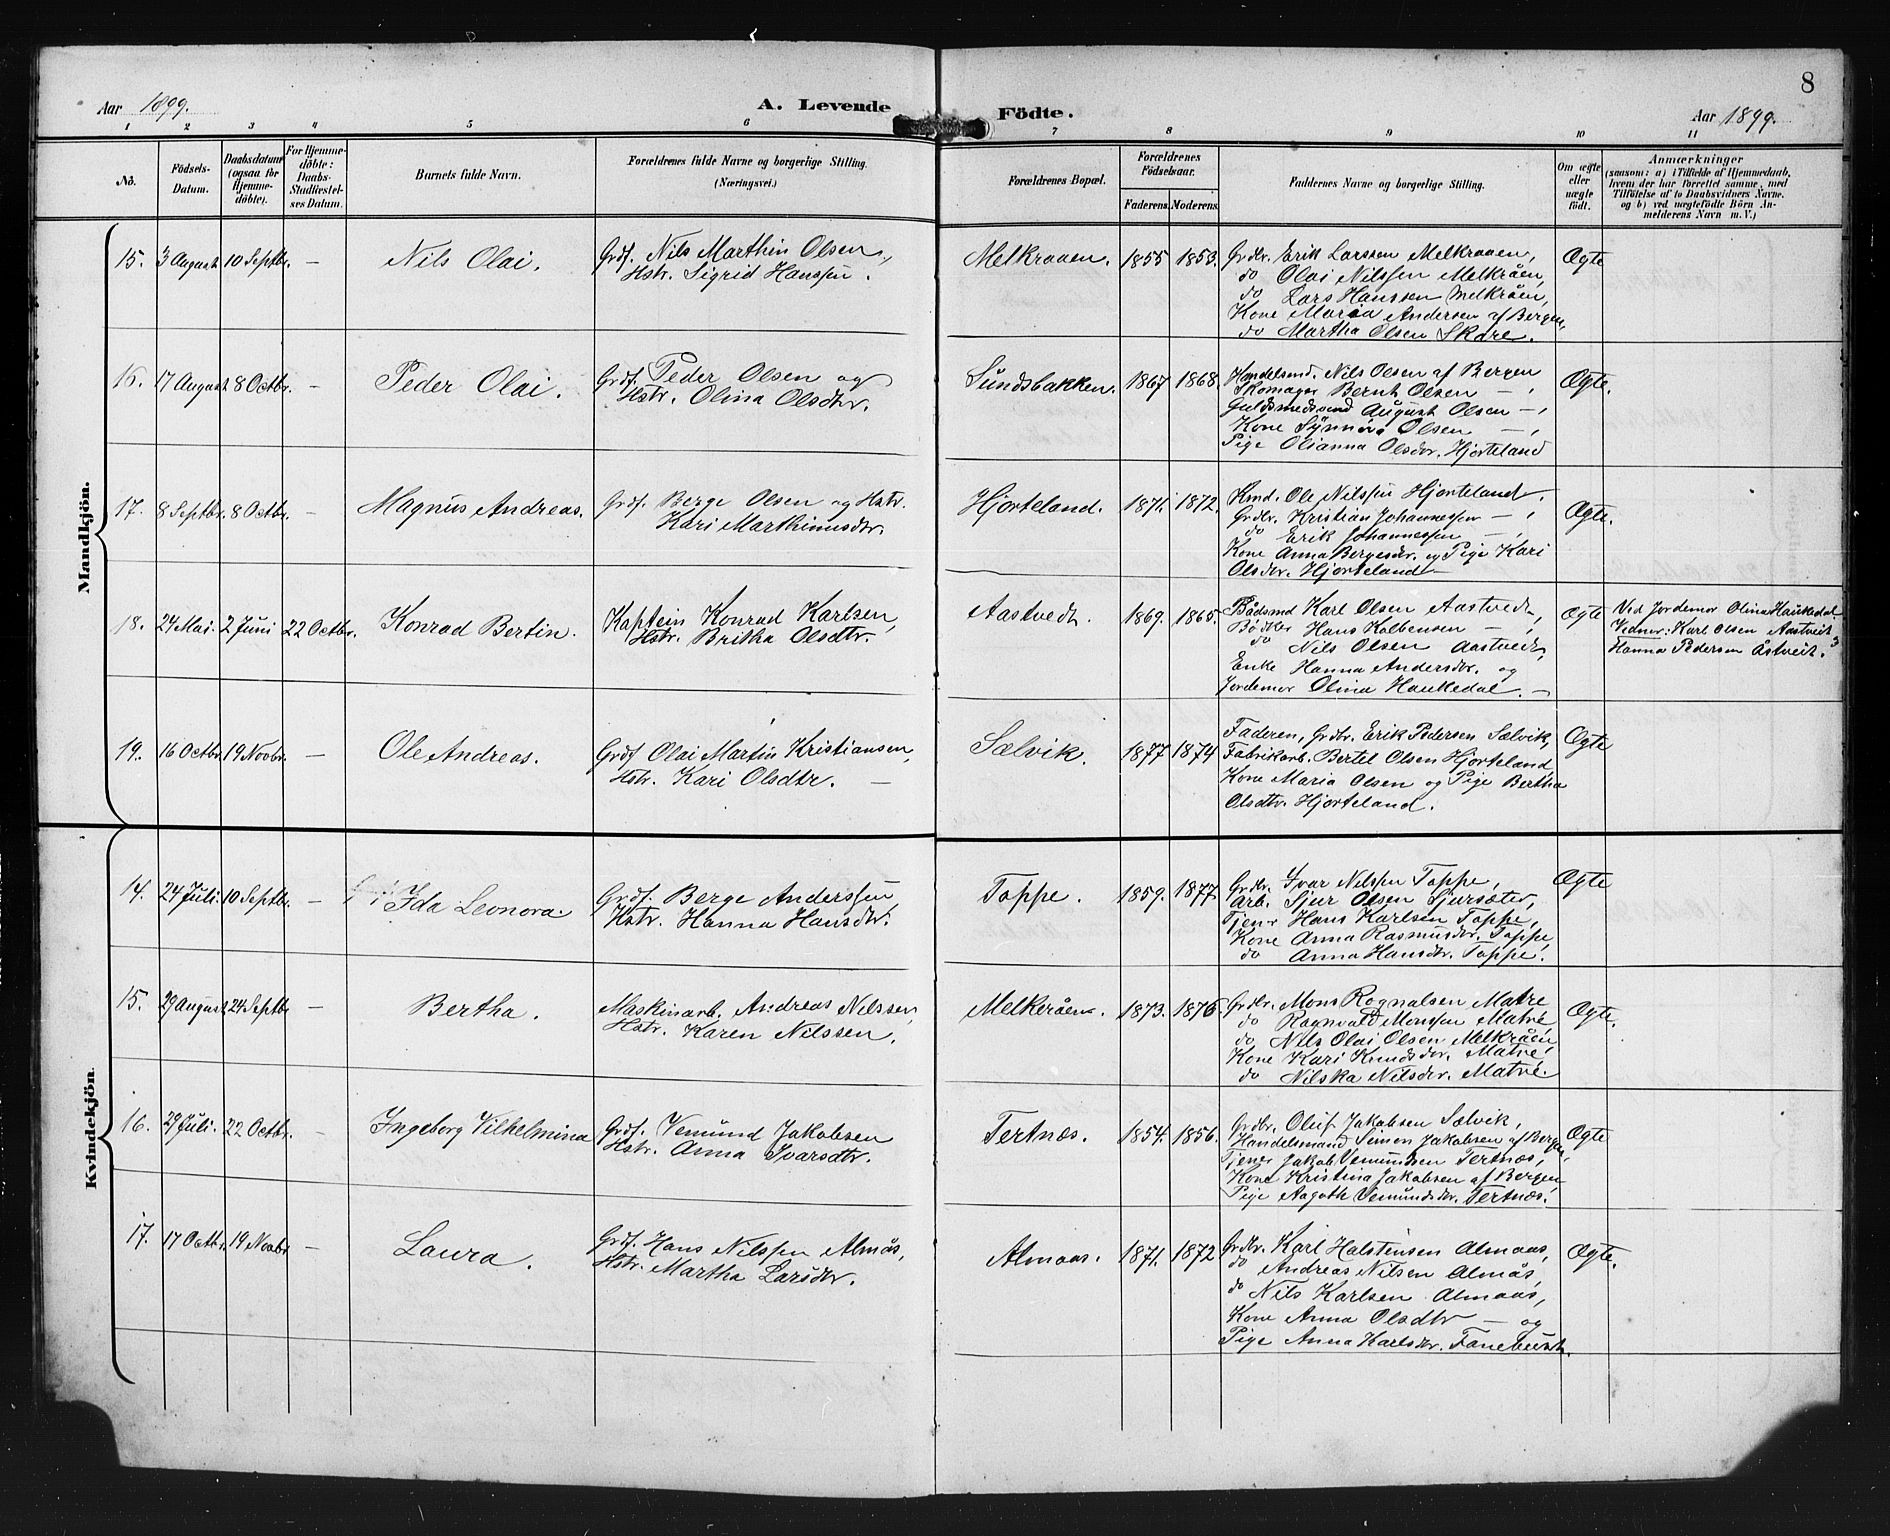 8
Aar 1899.
A. Levende Födte.
Aar 1899.
1 2 3 4 5 6 7 8 9 10 11
No.
Födsels-Datum.
Daabsdatum (ogsaa for Hjemme-döbte).
For Hjemme-döbte: Daabs-Stadfæstel-ses Datum.
Barnets fulde Navn.
Forældrenes fulde Navne og borgerlige Stilling.
(Næringsvei.)
Forældrenes Bopæl.
Forældrenes Födselsaar.
Faderens. Moderens.
Faddernes Navne og borgerlige Stilling.
Om ægte eller uægte födt.
Anmærkninger
(saasom: a) i Tilfælde af Hjemmedaab, hvem der har forrettet samme, med Tilföielse af to Daabsvidners Navne, og b) ved uægtefödte Börn An-melderens Navn m. V.)
Mandkjön.
15. 3 August 10 Septbr. — Nils Olai.
Grdf. Nils Marthin Olsen,
Hstr. Sigrid Hanssen.
Melkraaen. 1855 1853.
Grdbr. Erik Larssen Melkraaen,
do Olai Nilssen Melkråen,
do Lars Hanssen Melkråen,
Kone Maria Andersen af Bergen,
do Martha Olsen Skare.
Ægte
16. 17 August 8 Octbr. — Peder Olai.
Grdf. Peder Olsen og
Hstr. Olina Olsdtr.
Sundsbakken. 1867 1868.
Handelsmd. Nils Olsen af Bergen
Skomager Bernt Olsen — ,
Guldsmedsvend August Olsen — ,
Kone Synnöva Olsen — ,
Pige Olianna Olsdtr. Hjorteland
Ægte.
17. 8 Septbr. 8 Octbr. — Magnus Andreas.
Grdf. Berge Olsen og Hstr.
Kari Marthinusdtr.
Hjorteland. 1871. 1872.
Kmd. Ole Nilssen Hjorteland,
Grdbr. Kristian Johannessen — ,
do Erik Johannessen — ,
Kone Anna Bergesdtr. og Pige Kari
Olsdtr. Hjorteland —
Ægte.
18. 24 Mai. 2 Juni 22 Octbr. Konrad Bertin.
Kaptein Konrad Karlsen,
Hstr. Britha Olsdtr.
Aastvedt. 1869. 1865.
Bådsmd Karl Olsen Aastvedt,
Bödker Hans Kolbensen — ,
do Nils Olsen Aastvedt,
Enke Hanna Andersdtr. og
Jordemor Olina Haukedal. —
Ægte
Ved Jordemor Olina Haukedal.
Vidner: Karl Olsen Aastveit
Hanna Pedersen Åstveit.
19. 16 Octbr. 19 Novbr. — Ole Andreas.
Grdf Olai Martin Kristiansen,
Hstr. Kari Olsdtr. —
Sælvik. 1877 1874
Faderen, Grdbr. Erik Pedersen Sælvik,
Fabrikarb. Bertel Olsen Hjorteland,
Kone Maria Olsen og Pige Bertha
Olsdtr. Hjorteland.
Ægte
Kvindekjön.
14. 24 Juli. 10 Septbr. — Ida Leonora.
Grdf. Berge Anderssen
Hstr. Hanna Hansdtr.
Toppe. 1859. 1877.
Grdbr. Ivar Nilssen Toppe,
Arb. Sjur Olsen Sjursæter,
Tjener Hans Karlsen Toppe,
Kone Anna Rasmusdtr. Toppe,
do Anna Hansdtr. Toppe.
Ægte
15. 29 August 24 Septbr — Bertha.
Maskinarb. Andreas Nilssen,
Hstr. Karen Nilssen.
Melkeråen. 1873. 1876.
Grdbr. Mons Rognalsen Matre
do Rognvald Monssen Matre,
do Nils Olai Olsen Melkråen
Kone Kari Knudsdtr. Matre,
do Nilska Nilsdtr. Matre.
Ægte.
16. 29 Juli. 22 Octbr. — Ingeborg Vilhelmina
Grdf. Vemund Jakobsen
Hstr. Anna Ivarsdtr.
Tertnæs. 1854. 1856.
Grdbr. Oluf Jakobsen Sælvik,
Handelsmand Simon Jakobsen af Bergen,
Tjener Jakob Vemundsen Tertnæs,
Kone Kristina Jakobsen af Bergen,
Pige Aagoth Vemundsdtr. Tertnæs.
Ægte
17. 17 Octbr. 19 Novbr — Laura.
Grdf. Hans Nilssen Almås,
Hstr. Martha Larsdtr.
Almaas. 1871. 1872
Grdbr. Karl Halstensen Almaas,
do Andreas Nilsen Almås,
do Nils Karlsen Almaas,
Kone Anna Olsdtr — og
Pige Anna Karlsdtr. Fanebust.
Ægte.